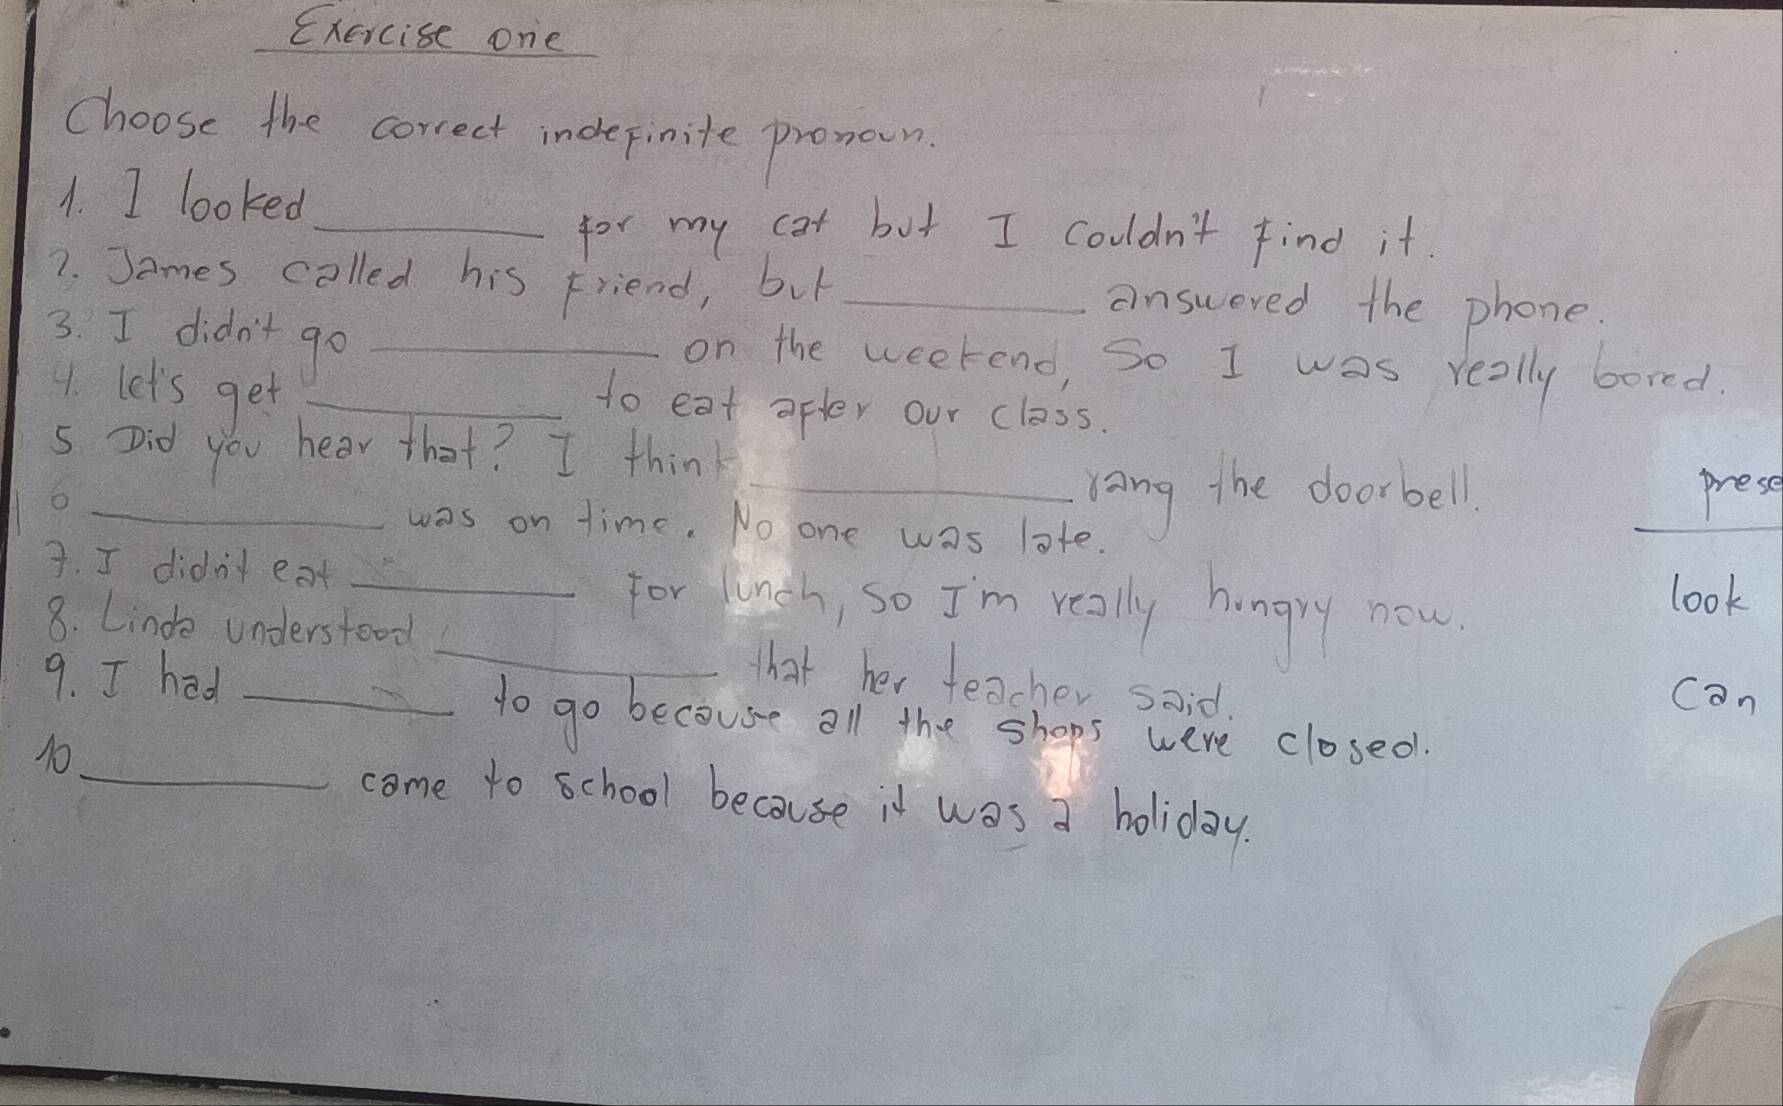 Exercise one
Choose the correct indefinite pronoun.
1. I looked ________ for my cat but I couldn't find it.
2. James called his friend, but ________ answered the phone.
3. I didn't go ________ on the weekend, so I was really bored.
4. let's get ________ to eat after our class.
5 Did you hear that? I think ________ rang the doorbell.
6 ________ was on time. No one was late.
7. I didn't eat ________ for lunch, so I'm really hungry now.
8. Linda understood ________ that her teacher said.
9. I had ________ to go because all the shops were closed.
10 ________ came to school because it was a holiday.
prese
look
can